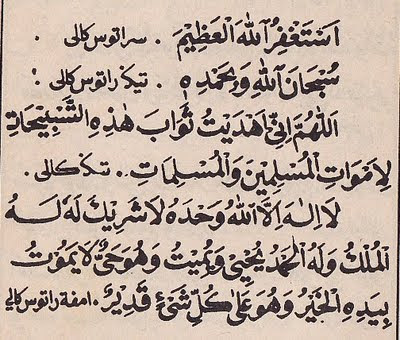 اَسْتَغْفِرُ اللهَ الْعَظِيْمَ . سراتوس كالى
سُبْحَانَ اللهِ وَبِحَمْدِهِ . تيݢ راتوس كالى :
اَللّٰهُمَّ اِنِّىْ اَهْدَيْتُ ثَوَابَ هٰذِهِ التَّسْبِيْحَاتِ
لِاَمْوَاتِ الْمُسْلِمِيْنَ وَالْمُسْلِمَاتِ .. تيݢ كالى .
لَا اِلٰهَ اِلَّا اللهُ وَحْدَهُ لَا شَرِيْكَ لَهُ لَهُ
الْمُلْكُ وَلَهُ الْحَمْدُ يُحْيِىْ وَيُمِيْتُ وَهُوَ حَىٌّ لَا يَمُوْتُ
بِيَدِهِ الْخَيْرُ وَهُوَ عَلٰى كُلِّ شَىْءٍ قَدِيْرٌ . امفة راتوس كالي